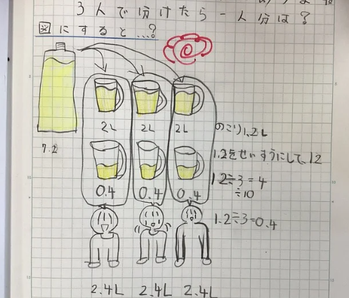 3人で分けたら一人分は?
図にすると…?
7.2
2L 2L 2L
のこり1.2L
1.2をせいすうにして、12
0.4 0.4 0.4
12÷3=4
÷10
1.2÷3=0.4
2.4L 2.4L 2.4L